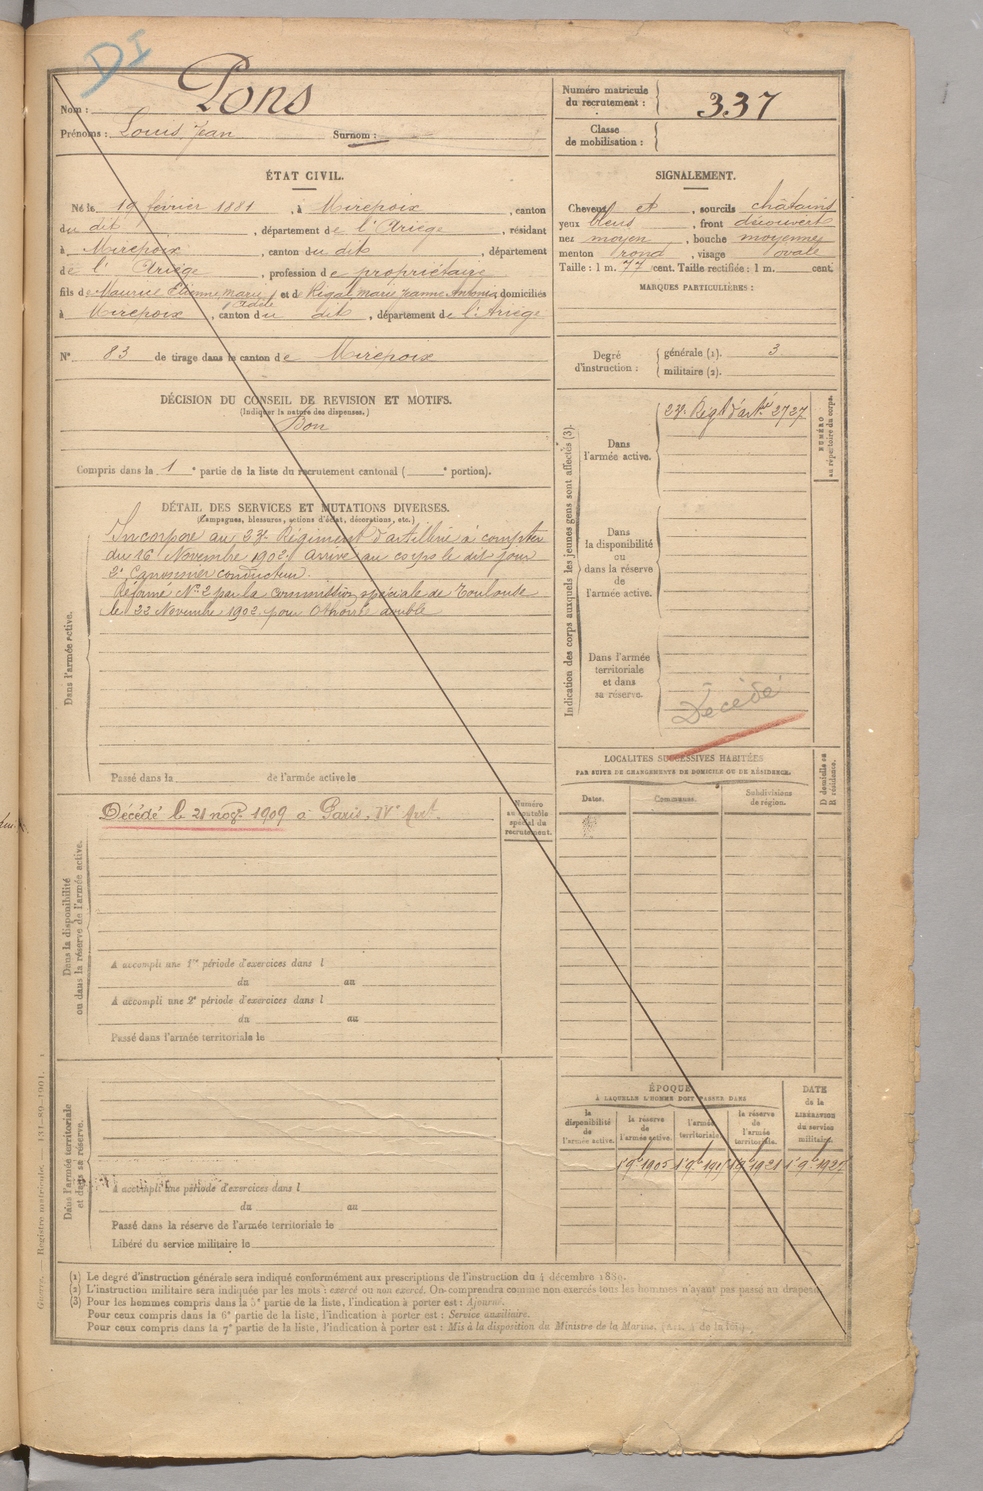 DI
Nom : Pons
Prénoms : Louis Jean Surnom :
Numéro matricule du recrutement : 337
Classe de mobilisation :
ÉTAT CIVIL.
Né le 19 février 1881, à Mirepoix, canton
du dit, département de l'Ariège, résidant
à Mirepoix, canton du dit, département
de l'Ariège, profession de propriétaire
fils de Maurice Etienne Marie et de Rigal Marie Jeanne Antonia domiciliés
à Mirepoix, canton du dit, département de l'Ariège
N° 83 de tirage dans le canton de Mirepoix
SIGNALEMENT.
Cheveux et, sourcils châtains
yeux bleus, front découvert
nez moyen, bouche moyenne
menton rond, visage ovale
Taille : 1 m. 77 cent. Taille rectifiée : 1 m. cent.
MARQUES PARTICULIÈRES :
Degré d'instruction :
générale (1). 3
militaire (2).
DÉCISION DU CONSEIL DE REVISION ET MOTIFS.
(Indiquer la nature des dispenses.)
Bon
Compris dans la 1e partie de la liste du recrutement cantonal ( e portion).
DÉTAIL DES SERVICES ET MUTATIONS DIVERSES.
(Campagnes, blessures, actions d'éclat, décorations, etc.)
Dans l'armée active.
Incorporé au 23e Régiment d'artillerie à compter
du 16 Novembre 1902 arrivé au corps le dit jour
2e Canonnier conducteur.
Réformé N° 2 par la commission spéciale de Toulouse
le 22 Novembre 1902 pour
Passé dans la de l'armée active le
Indication des corps auxquels les jeunes gens sont affectés (3).
Dans l'armée active.
23e Régt d'artie 2727
NUMÉRO au répertoire du corps.
Dans la disponibilité ou dans la réserve de l'armée active.
Dans l'armée territoriale et dans sa réserve.
Décédé
Dans la disponibilité ou dans la réserve de l'armée active.
Décédé le 21 nov. 1909 à Paris, IVe Arrt
Numéro au contrôle spécial du recrutement.
A accompli une 1re période d'exercices dans l
du au
A accompli une 2e période d'exercices dans l
du au
Passé dans l'armée territoriale le
LOCALITÉS SUCCESSIVES HABITÉES
PAR SUITE DE CHANGEMENTS DE DOMICILE OU DE RÉSIDENCE.
Dates. Communes. Subdivisions de région.
D domicile ou R résidence.
Dans l'armée territoriale et dans sa réserve.
A accompli une période d'exercices dans l
du au
Passé dans la réserve de l'armée territoriale le
Libéré du service militaire le
ÉPOQUE
À LAQUELLE L'HOMME DOIT PASSER DANS
la disponibilité de l'armée active.
la réserve de l'armée active.
l'armée territoriale.
la réserve de l'armée territoriale.
DATE de la LIBÉRATION du service militaire.
(1) Le degré d'instruction générale sera indiqué conformément aux prescriptions de l'instruction du 4 décembre 1889.
(2) L'instruction militaire sera indiquée par les mots : exercé ou non exercé. On comprendra comme non exercés tous les hommes n'ayant pas passé au drapeau.
(3) Pour les hommes compris dans la 5e partie de la liste, l'indication à porter est : Ajourné.
Pour ceux compris dans la 6e partie de la liste, l'indication à porter est : Service auxiliaire.
Pour ceux compris dans la 7e partie de la liste, l'indication à porter est : Mis à la disposition du Ministre de la Marine.
Guerre. — Registre matricule. 131-89-1901.